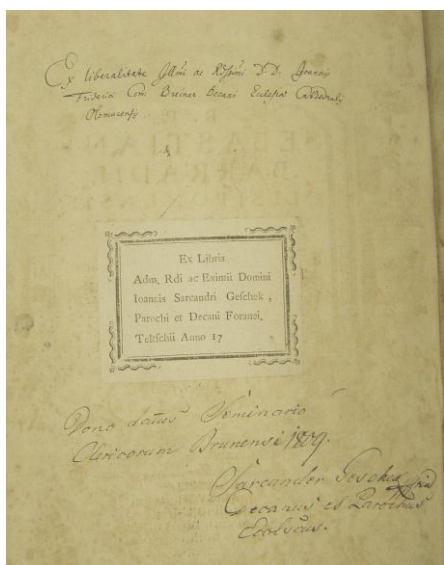 Ex liberalitate Illmi ac Rdssimi D. D. Joannis
Friderici Com: Breiner Decani Ecclesiæ Cathedralis
Olomucensis
Ex Libris
Adm, Rdi ac Eximii Domini
Ioannis Sarcandri Geſchek,
Parochi et Decani Foranei,
Teltſchii Anno 17
Dono datus Seminario
Clericorum Brunensi 1809.
Sarcander Geschek
Decanus et Parochus